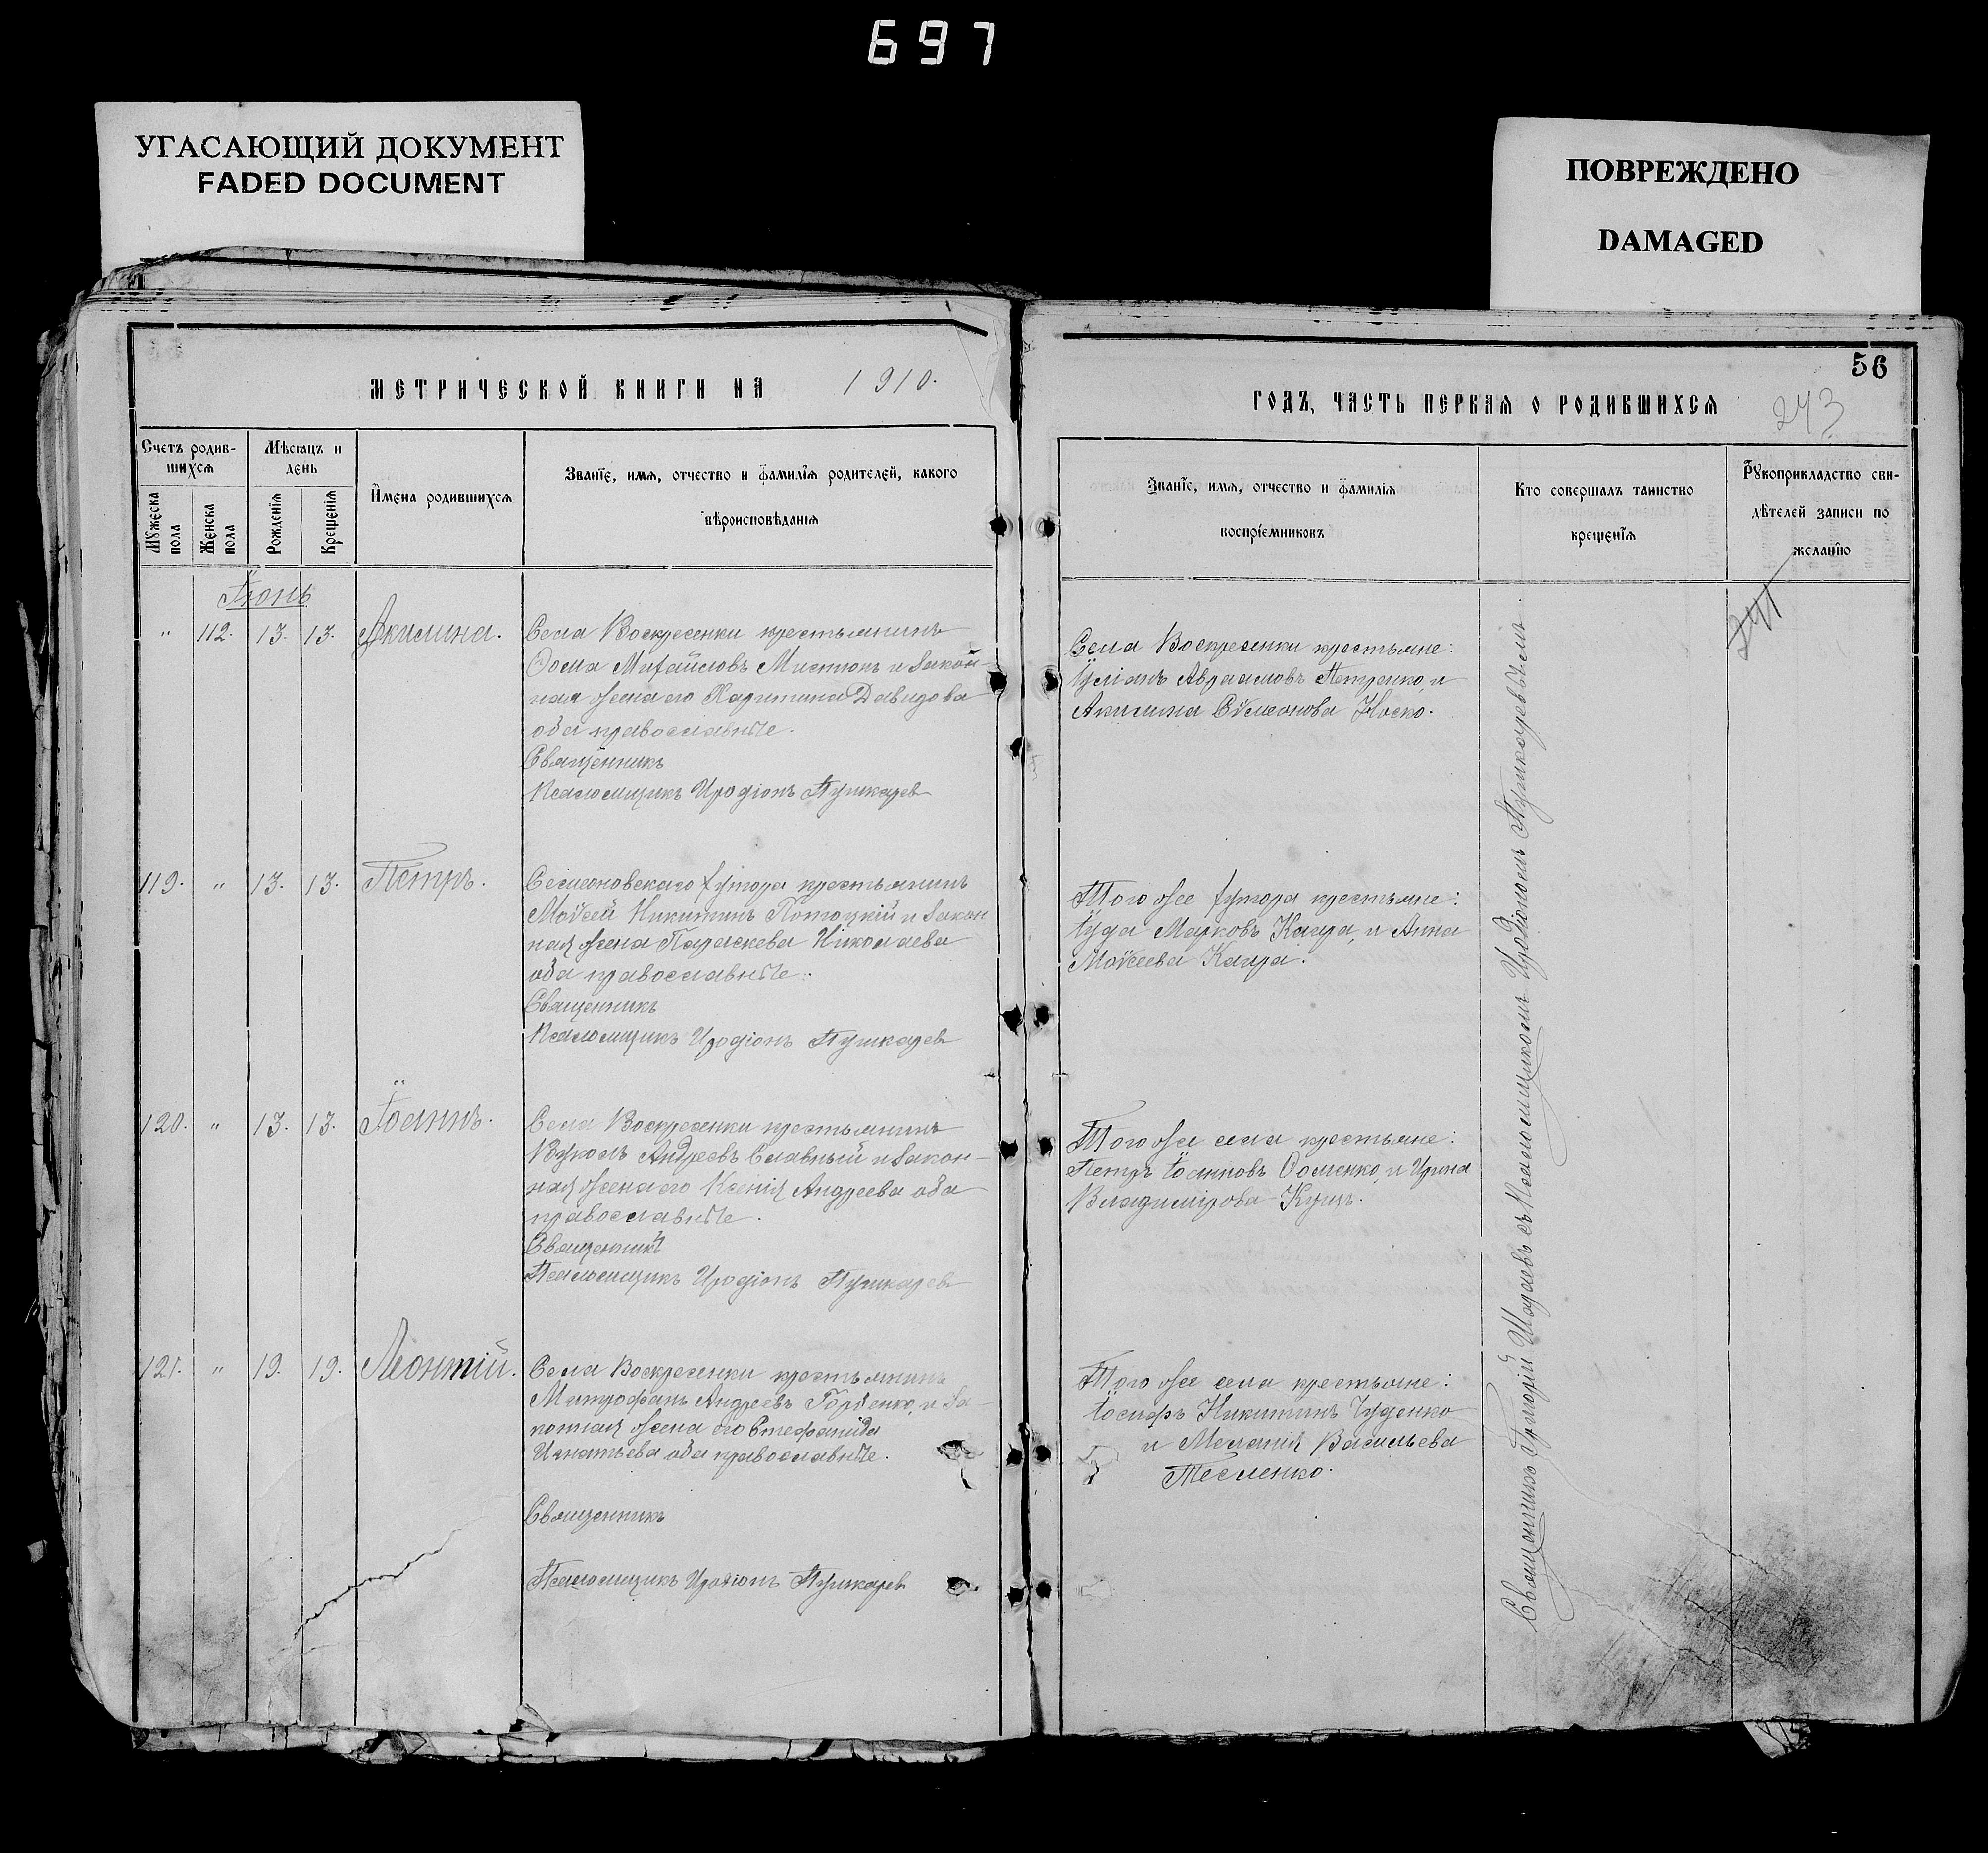 697
УГАСАЮЩИЙ ДОКУМЕНТ
FADED DOCUMENT
ПОВРЕЖДЕНО
DAMAGED
МЕТРИЧЕСКОЙ КНИГИ НА 1910.
Счетъ родив-
шихся
Мужеска
пола
Женска
пола
Мѣсяцъ и
день
Рожденія
Крещенія
Имена родившихся
Званіе, имя, отчество и фамилія родителей, какого
вѣроисповѣданія
Іюнь
" 112. 13. 13. Акилина.
Села Воскресенки крестьянинъ
Ѳома Михайловъ и закон-
ная жена его Харитина Давидова
оба православные.
Священникъ
Псаломщикъ Иродіонъ Пушкарев
119. " 13. 13. Петръ.
Семеоновскаго хутора крестьянинъ
Моѵсей Никитинъ Потоцкій и закон
ная жена Параскева Николаева
оба православные.
Священникъ
Псаломщикъ Иродіонъ Пушкарев
120. " 13. 13. Іоаннъ.
Села Воскресенки крестьянинъ
Вуколъ Андреевъ Славный и закон-
ная жена его Ксенія Андреева оба
православные.
Священникъ
Псаломщикъ Иродіонъ Пушкарев
121. " 19. 19. Леонтій.
Села Воскресенки крестьянинъ
Митрофанъ Андреевъ Горбенко, и за-
конная жена его Стефанида
Игнатьева оба православные.
Священникъ
Псаломщикъ Иродіонъ Пушкарев
56
ГОДЪ, ЧАСТЬ ПЕРВАЯ О РОДИВШИХСЯ
273
Званіе, имя, отчество и фамилія
воспріемниковъ
Кто совершалъ таинство
крещенія
Рукоприкладство сви-
дѣтелей записи по
желанію
Села Воскресенки крестьяне:
Авраамовъ Петренко, и
Акилина Сѵмеонова Носко.
Того же хутора крестьяне:
Іуда Марковъ Капра, и Анна
Моѵсеева Капра.
Того же села крестьяне:
Петръ Іоанновъ Ѳоменко, и Ирина
Владимірова Куцъ.
Того же села крестьяне:
Іосифъ Никитинъ Чуденко
и Меланія Васильева
Тесленко.
Священникъ Григорій съ Псаломщикомъ Иродіономъ Пушкаревымъ.